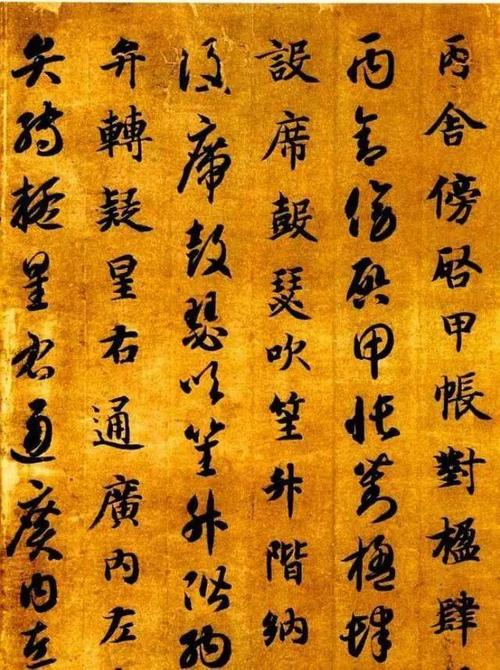 丙舍傍啓甲帳對楹肆
丙舍傍啓甲帳對楹肆
設席鼓瑟吹笙升階納
設席鼓瑟吹笙升階納
弁轉疑星右通廣内左
弁轉疑星右通廣内左